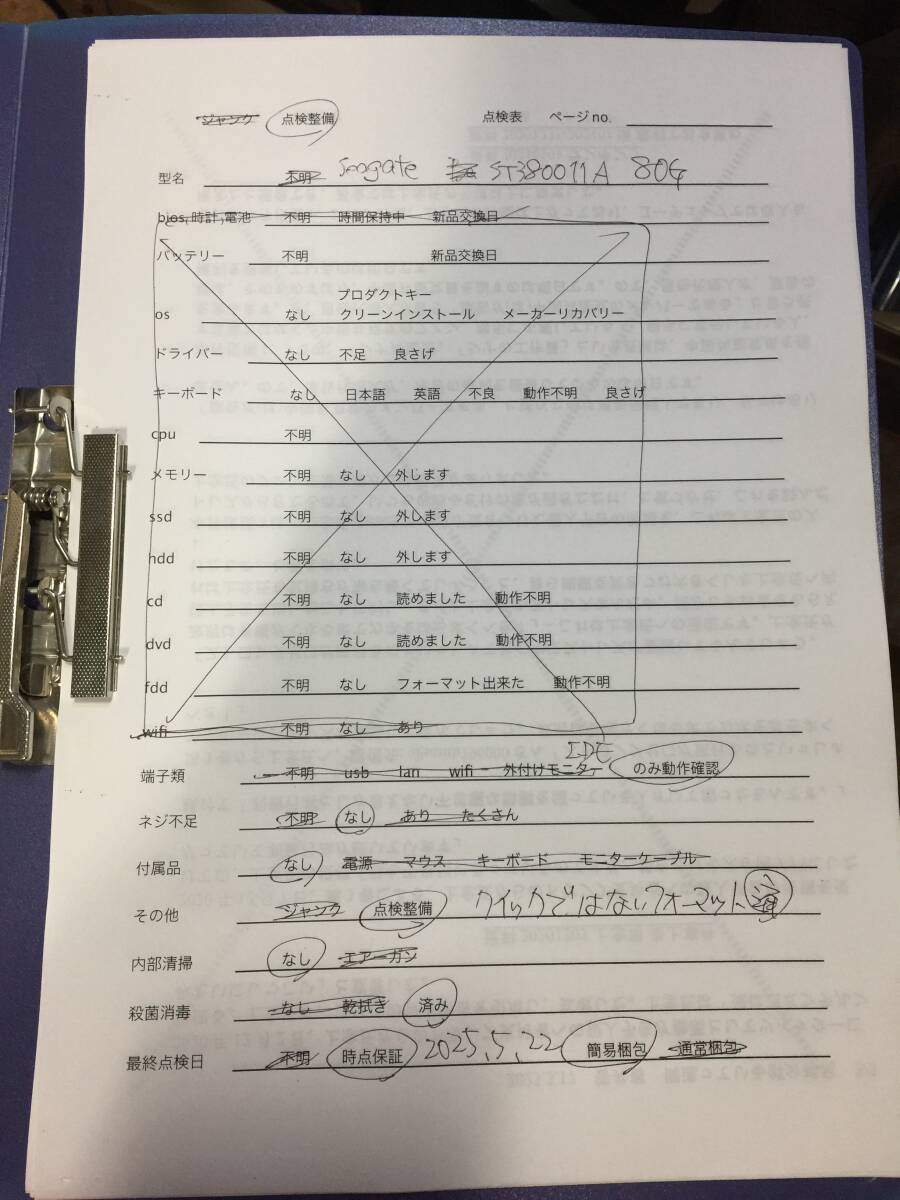 ジャンク 点検整備 点検表 ページno.
型名 不明 Seagate ST380011A 80G
bios,時計,電池 不明 時間保持中 新品交換日
バッテリー 不明 新品交換日
プロダクトキー
os なし クリーンインストール メーカーリカバリー
ドライバー なし 不足 良さげ
キーボード なし 日本語 英語 不良 動作不明 良さげ
cpu 不明
メモリー 不明 なし 外します
ssd 不明 なし 外します
hdd 不明 なし 外します
cd 不明 なし 読めました 動作不明
dvd 不明 なし 読めました 動作不明
fdd 不明 なし フォーマット出来た 動作不明
wifi 不明 なし あり
IDE
端子類 不明 usb lan wifi 外付けモニター のみ動作確認
ネジ不足 不明 なし あり たくさん
付属品 なし 電源 マウス キーボード モニターケーブル
その他 ジャンク 点検整備 クイックではないフォーマット済
内部清掃 なし エアーガン
殺菌消毒 なし 乾拭き 済み
最終点検日 不明 時点保証 2025.5.22 簡易梱包 通常梱包